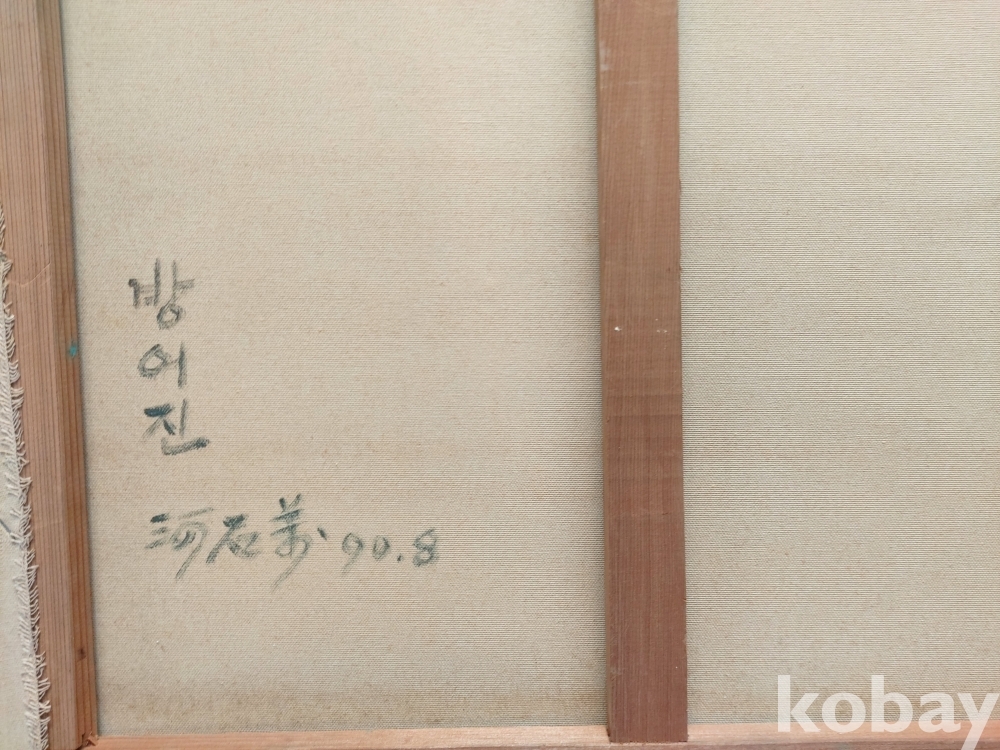 방어진
海石 '90.8
kobay